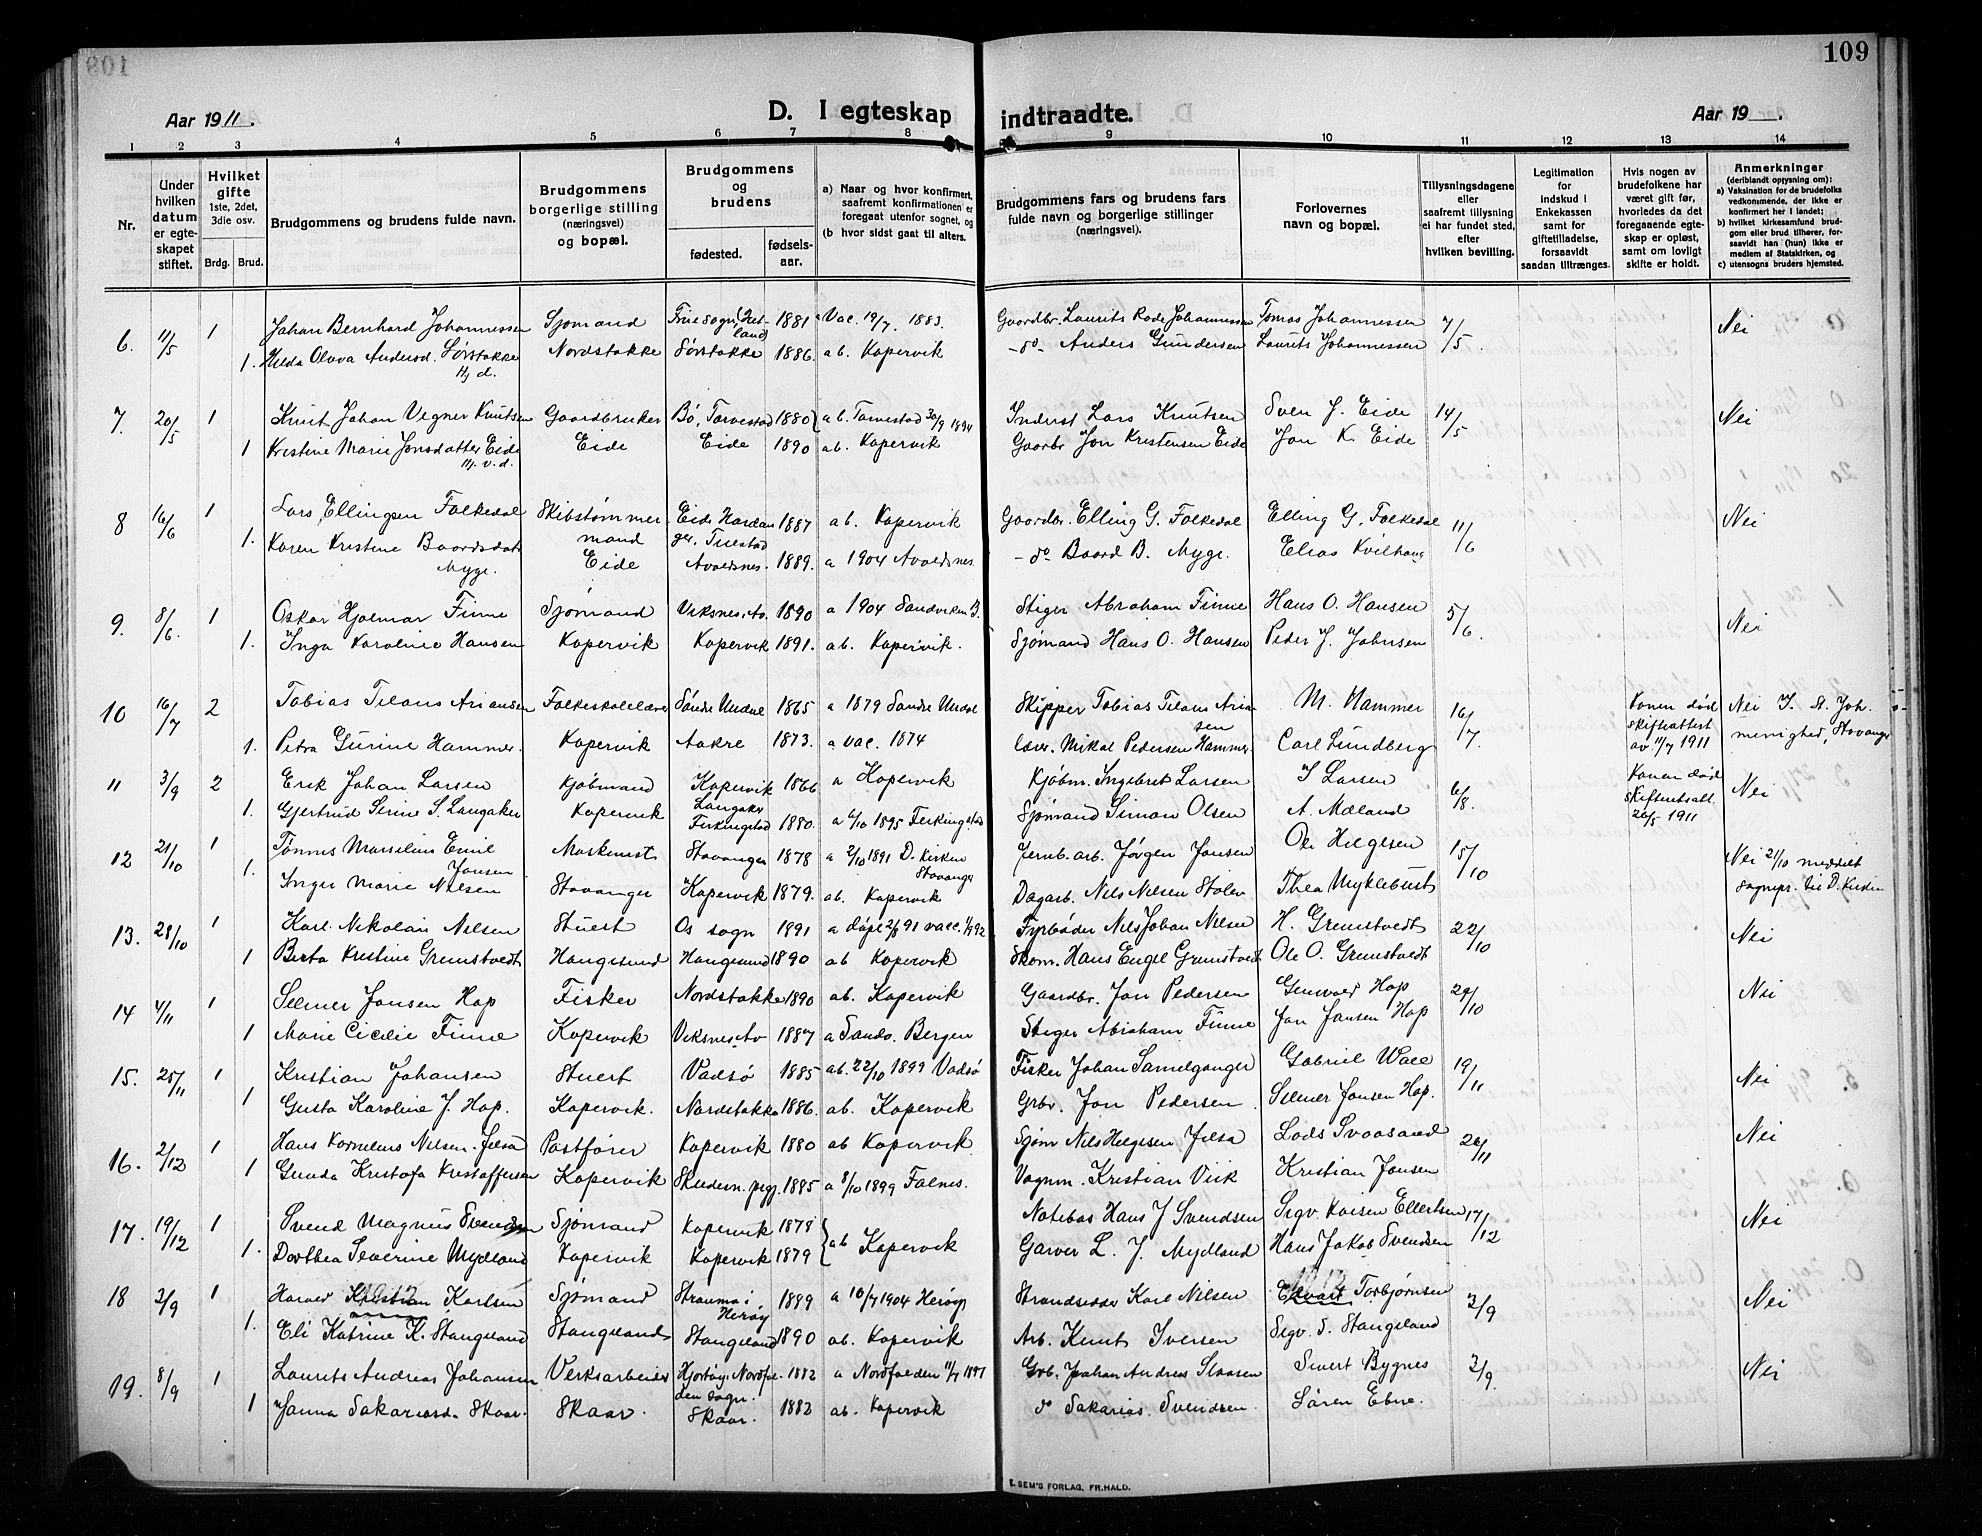 109
Aar 1911.
D. I egteskap indtraadte.
Aar 19 .
1 2 3 4 5 6 7 8 9 10 11 12 13 14
Nr.
Under hvilken datum er egteskapet stiftet.
Hvilket gifte 1ste, 2det, 3die osv.
Brdg. Brud.
Brudgommens og brudens fulde navn.
Brudgommens borgerlige stilling (næringsvei) og bopæl.
Brudgommens og brudens
fødested.
fødsels-aar.
a) Naar og hvor konfirmert, saafremt konfirmationen er foregaat utenfor sognet, og
(b hvor sidst gaat til alters.
Brudgommens fars og brudens fars fulde navn og borgerlige stillinger (næringsvei).
Forlovernes navn og bopæl.
Tillysningsdagene eller saafremt tillysning ei har fundet sted, efter hvilken bevilling.
Legitimation for indskud i Enkekassen samt for giftetilladelse, forsaavidt saadan tiltrænges.
Hvis nogen av brudefolkene har været gift før, hvorledes da det foregaaende egteskap er opløst, samt om lovligt skifte er holdt.
Anmerkninger (deriblandt opysning om):
a) Vaksination for de brudefolks vedkommende, der ikke er konfirmert her i landet;
b) hvilket kirkesamfund brudgom eller brud tilhører, forsaavidt han (hun) ikke er medlem af Statskirken, og
c) utensogns bruders hjemsted.
6. 11/5 1 Johan Bernhard Johannessen Sjømand 1881 Vac. 19/7. 1883. Gaardbr. Laurits Johannessen Tomas Johannessen 7/5 Nei
1. Hilda Olava Andersd. Sørstokke Nordstokke Sørstokke 1886. ab. Kopervik -do- Anders Gundersen Laurits Johannessen
7. 20/5 1 Knut Johan Vegner Knutsen Gaardbruker Bø, Torvestad 1880 ab. Torvestad 30/9 1894 Inderst Lars Knutsen Sven J. Eide 14/5 Nei
1 Kristine Marie Jonsdatter Eide Eide Eide 1890 ab. Kopervik Gaardbr Jon Kristensen Eide Jon K. Eide
8 16/6 1 Lars Ellingsen Folkedal Skibstømmermand 1887 ab. Kopervik Gaardbr. Elling G. Folkedal Elling G. Folkedal 11/6 Nei
1. Karen Kristine Baardsdatr Myge. Eide Avaldsnes. 1889. a 1904 Avaldsnes. -do Baard B. Myge. Elias Kvilhaug
9. 8/6. 1 Oskar Hjalmar Finne Sjømand Viksnes, Av. 1890 a 1904 Sandviken B. Stiger Abraham Finne Hans O. Hansen 5/6. Nei
1. Inga Karoline Hansen Kopervik Kopervik 1891. ab. Kopervik. Sjømand Hans O. Hansen Peder J. Johnsen
10 16/7 2 Tobias Tilans Ariansen Folkeskolelærer Søndre Undal 1865 a 1879 Søndre Undal Skipper Tobias Tilans Ariansen M. Hammer 16/7 Konen død skifteattest av 11/7 1911 Nei I. St. Joh. menighed, Stavanger
1. Petra Gurine Hammer. Kopervik Aakre 1873. a vac. 1874 Lærer. Mikal Pedersen Hammer. Carl Lundberg
11 3/9 2 Erik Johan Larsen Kjøbmand Kopervik 1866 a Kopervik Kjøbm. Ingebret Larsen I Larsen 6/8. Konen død 26/5 1911 Nei
1. Gjertrud Serine S. Langaker Kopervik Langaker Ferkingstad 1880. a 6/10 1895 Ferkingstad Sjømand Simon Olsen A. Mæland
12 21/10 1 Tønnes Marselius Emil Jansen Maskinist Stavanger 1878 a 2/10 1891 D. Kirken Stavanger Jernb. arb. Jørgen Jansen Ole Helgesen 15/10 Nei 21/10 meddelt sognepr. til D. Kirken
1. Inger Marie Nilsen Stavanger Kopervik 1879. ab. Kopervik Dagarb. Nils Nilsen Stolen Thea Myklebust
13. 28/10 1 Karl Nikolai Nilsen Stuert Os sogn 1891 a døpt 2/8 91 vacc. Fyrbøder Nils Johan Nilsen H. Gremstvedt 22/10 Nei
1 Berta Kristine Gremstvedt Haugesund Haugesund 1890 ab Kopervik Skom. Hans Engel Gremstvedt Ole O. Gremstvedt
14 4/11 1 Selmer Jansen Hop Fisker Nordstokke 1890 ab. Kopervik Gaardbr. Jon Pedersen Hop 29/10 Nei
1 Marie Cicilie Finne Kopervik Viksnes. Av 1887 a Sandv. Bergen Stiger Abraham Finne Jon Jansen Hop
15. 25/11 1 Kristian Johansen Stuert Vadsø 1885 ab. 22/10 1899 Vadsø Fisker Johan Samelganger Gabriel Wall 19/11 Nei
1 Gusta Karoline J. Hop. Kopervik. Nordstokke 1886. ab. Kopervik Grbr. Jon Pedersen Selmer Jansen Hop.
16. 2/12 1 Hans Kornelius Nilsen Jelsa Postfører Kopervik 1880 ab Kopervik Sjøm Nils Helgesen Jelsa Svaasand 26/11 Nei
1 Gunda Kristofa Kristoffersen Kopervik Skudesn. prgj. 1885 a 8/10 1899 Falnes. Vognm. Kristian Viik Kristian Jansen
17. 19/12 1 Svend Magnus Svendsen Sjømand Kopervik 1878 ab Kopervik Notebas Hans J Svendsen Sigv. Ellertsen 17/12 Nei
1. Dorthea Severine Mydland Kopervik Kopervik 1879 Garver L. J. Mydland Hans Jakob Svendsen
1912
18 3/9 1 Harald Kristian Karlsen Sjømand Herøy 1889 a 10/7 1904 Herøy Strandsidder Karl Nilsen Edvart Torbjørnsen 3/9 Nei
1. Eli Katrine K. Stangeland Stangeland Stangeland 1890 ab. Kopervik Arb. Knut Iversen Sigv. S. Stangeland
19. 8/9 1 Laurits Andreas Johansen Verksarbeider Nordfolden sogn. 1882 a Nordfolden 11/7 1897 Grb. Johan Andreas Sivert Bygnes 3/9. Nei
1 Janna Sakariasd. Skaar. Skaar. Skaar. 1882 ab. Kopervik do Sakarias. Svendsen. Søren Ebne.
E. SEM'S FORLAG, FR.HALD.